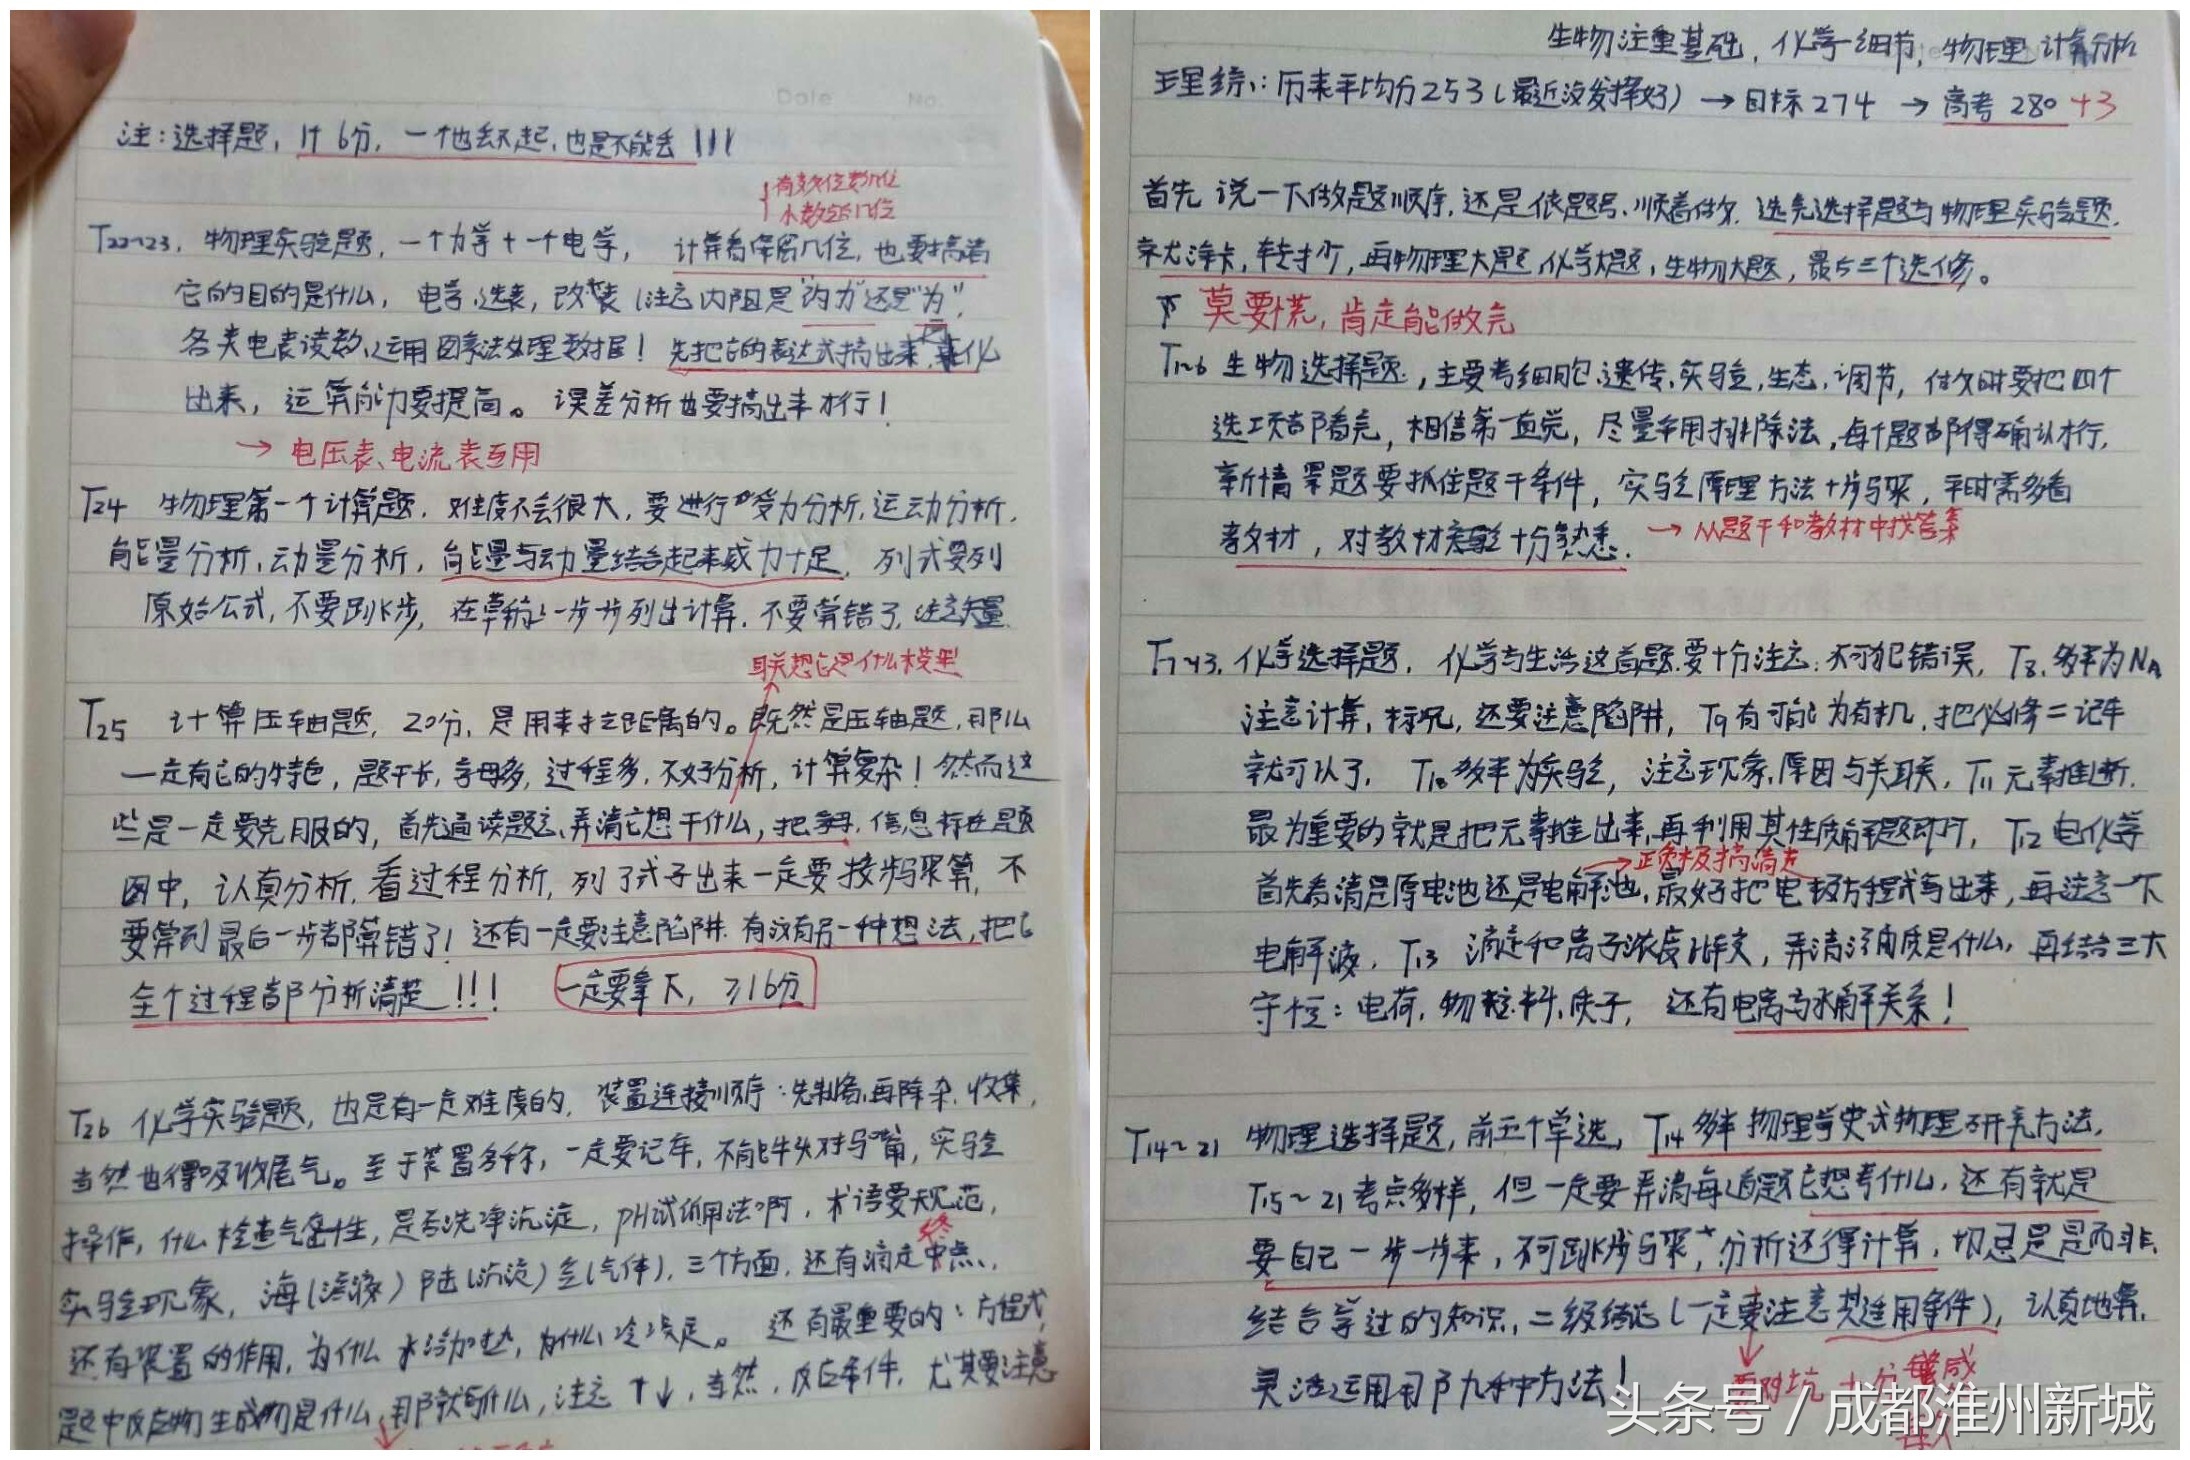 Date No.
注：选择题，1个6分，一个也丢不起，也是不能丢!!!
有效位数几位
小数点后几位
T22~23，物理实验题，一个力学+一个电学，计算看保留几位，也要搞清
它的目的是什么，电学，选表，改装（注意内阻是“约为”还是“为”，
各类电表读数，运用图象法处理数据！先把它的表达式搞出来，再化
出来，运算能力要提高。误差分析也要搞出来才行！
→ 电压表、电流表互用
T24 物理第一个计算题，难度不会很大，要进行受力分析，运动分析，
能量分析，动量分析，能量与动量结合起来威力十足，列式要列
原始公式，不要跳步，在草稿上一步一步列出计算，不要算错了，注意矢量
联想它是什么模型
T25 计算压轴题，20分，是用来拉距离的。既然是压轴题，那么
一定有它的特色，题干长，字母多，过程多，不好分析，计算复杂！然而这
些是一定要克服的，首先通读题意，弄清它想干什么，把字母，信息标在题
图中，认真分析，看过程分析，列了式子出来一定要按步骤算，不
要算到最后一步都算错了！还有一定要注意陷阱，有没有另一种想法，把它
全个过程都分析清楚!!! 一定要拿下，≥16分
T26 化学实验题，也是有一定难度的，装置连接顺序：先制备，再除杂，收集，
当然也得吸收尾气。至于装置名称，一定要记牢，不能牛头对马嘴，实验
操作，什么检查气密性，是否洗净沉淀，PH试纸用法啊，术语要规范，
终
实验现象，海（溶液）陆（沉淀）空（气体），三个方面，还有滴定点，
还有装置的作用，为什么水浴加热，为什么冷凝。还有最重要的：方程式，
题中反应物生成物是什么，用那就写什么，注意↑↓，当然，反应条件，尤其要注意
生物注重基础，化学细节，物理计算分析
理综：历来平均分253（最近没发挥好）→目标274 → 高考280 +3
首先说一下做题顺序，还是依题号，顺着做，选先选择题与物理实验题，
就涂卡，转抄，再物理大题，化学大题，生物大题，最后三个选修。
莫要慌，肯定能做完
T1~6 生物选择题，主要考细胞，遗传，实验，生态，调节，做时要把四个
选项都看完，相信第一直觉，尽量采用排除法，每个题都得确认才行，
新情景题要抓住题干条件，实验原理方法+步骤，平时需多看
教材，对教材要十分熟悉. → 从题干和教材中找答案
T7~13，化学选择题，化学与生活这首题要十分注意：不可犯错误，T8，多半为NA
注意计算，标况，还要注意陷阱，T9有可能为有机，把必修二记牢
就可以了，T10多半为实验，注意现象，原因与关联，T11元素推断，
最为重要的就是把元素推出来，再利用其性质解题即可，T12电化学
→正负极搞清楚
首先看清是原电池还是电解池，最好把电极方程式写出来，再注意一下
电解液，T13 滴定和离子浓度比较，弄清溶质是什么，再结合三大
守恒：电荷，物料，质子，还有电离与水解关系！
T14~21 物理选择题，前五个单选，T14多半物理学史或物理研究方法，
T15~21考点多样，但一定要弄清每道题它想考什么，还有就是
要自己一步一步来，不可跳步骤，分析还得计算，切忌是是而非，
结合学过的知识，二级结论（一定要注意其适用条件），认真地算，
灵活运用那九种方法！
要对坑十分警惕
头条号 / 成都淮州新城